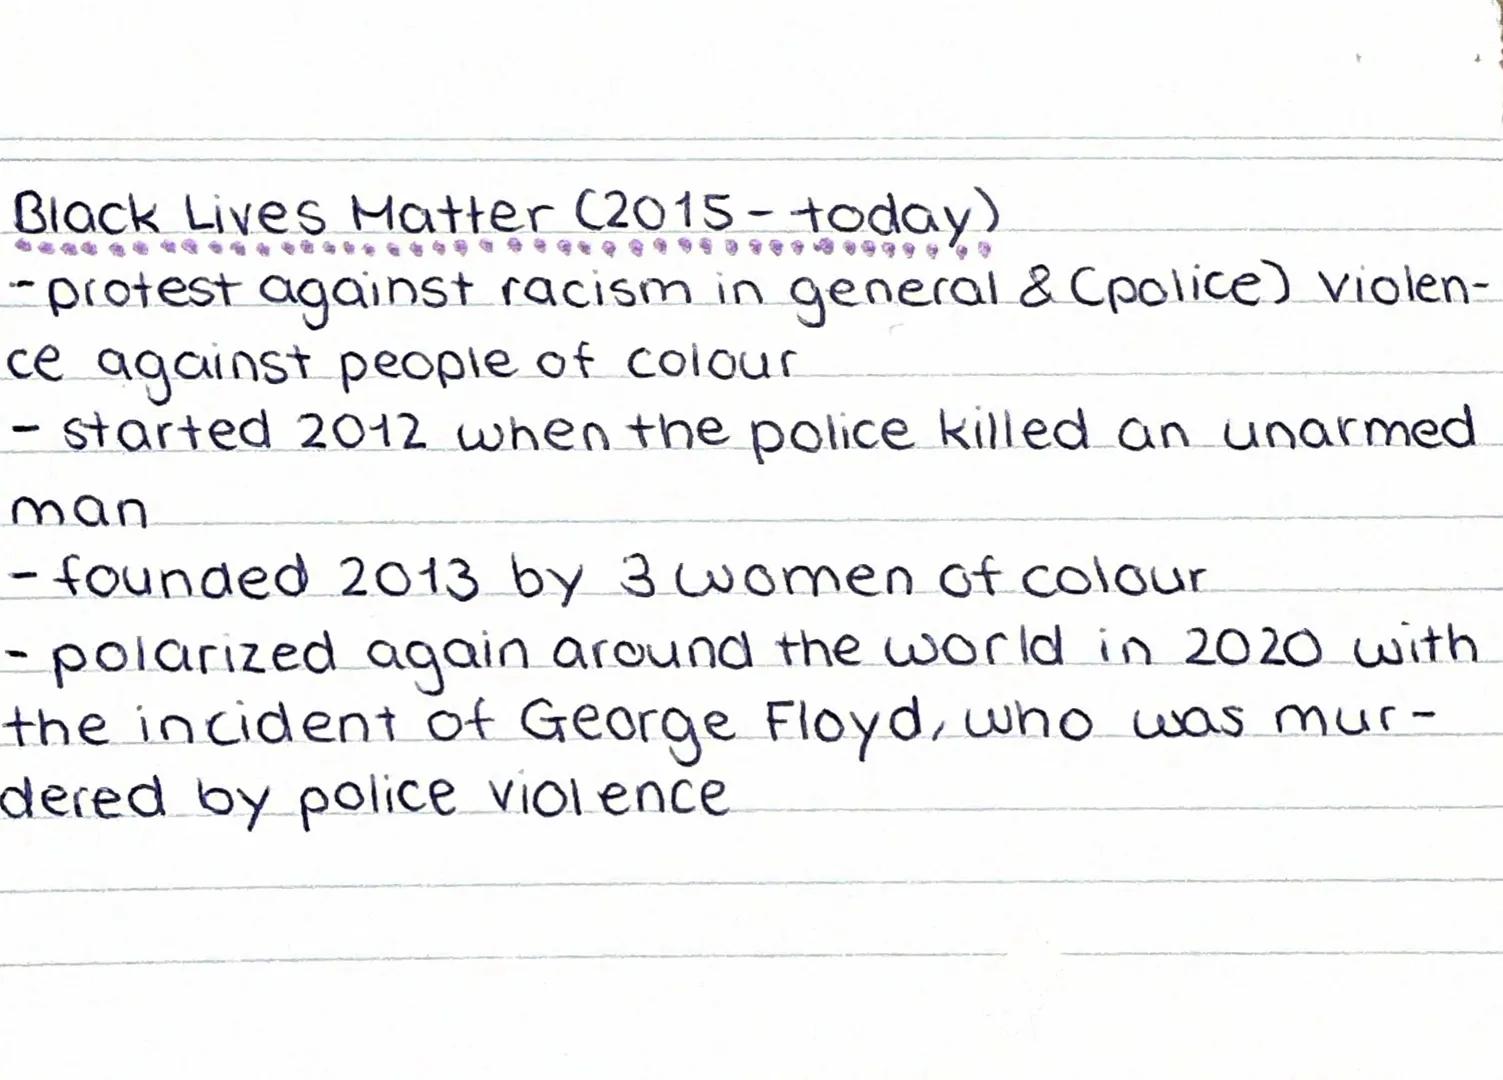 Black Lives Matter (2015 - today)
- protest against racism in general & (police) violen-
ce against people of colour
- started 2012 when the police killed an unarmed
man
- founded 2013 by 3 women of colour
- polarized again around the world in 2020 with
the incident of George Floyd, who was mur-
dered by police violence